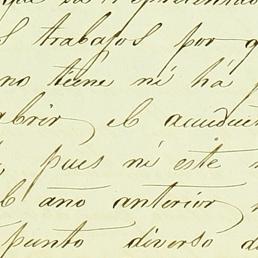 trabajos por q
no tiene ni há
abrir el acuedu
, pues ni este
l año anterior
punto diverso d